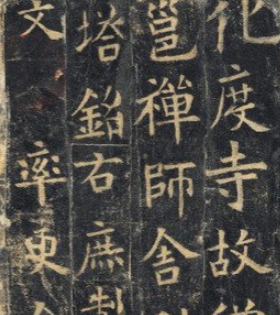 化度寺故僧
邕禪師舍
塔銘右庶製
文 率更